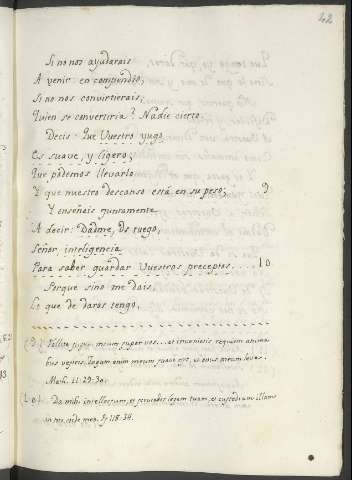 42
Si no nos ayudarais
A venir en compendio,
Si no nos convirtierais,
Quien se convertiria? Nadie cierto.
Decis: Que Vuestro yugo
Es suave, y ligero;
Que podemos llevarlo
Y que nuestro descanso está en su peso; 9
Y enseñais juntamente
A decir: Dádme, os ruego,
Señor, inteligencia
Para saber guardar Vuestros preceptos.... 10
Porque sino me dais
Lo que de daros tengo,
(9) Tollite jugum meum super vos... et invenietis requiem anima-
bus vestris. Jugum enim meum suave est, et onus meum leve.
Math. 11. 29-30.
(10) Da mihi intellectum, et scrutabor legem tuam, et custodiam illam
in toto corde meo. Ps 118. 34.